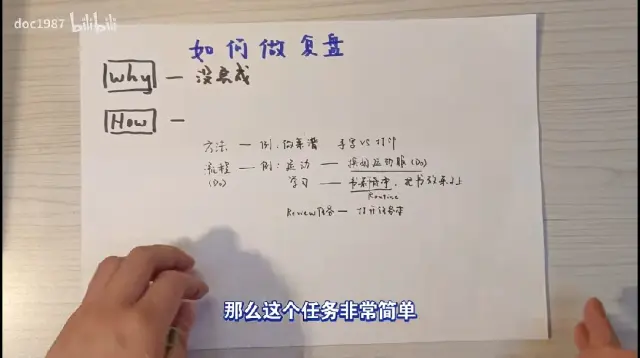 doc1987 bilibili
如何做复盘
Why — 没完成
How —
方法 — 例:做菜谱 手写 vs 打印
流程 — 例:运动 — 换好运动服(Do)
(Do) 学习 — 书桌清空,把书放桌上
Routine
Review任务 — 打开任务表
那么这个任务非常简单